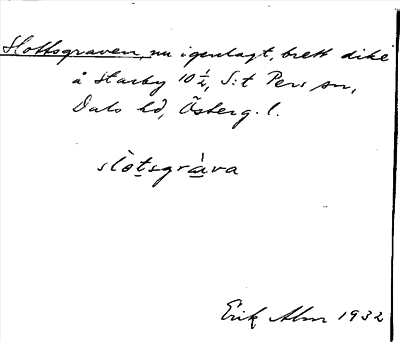 Slottsgraven, nu igenlagt, brett dike
å Starby 10 ½, S:t Pers sn,
Dals hd, Österg. l.
slo̱tsgrà̱va
Erik Alm 1932